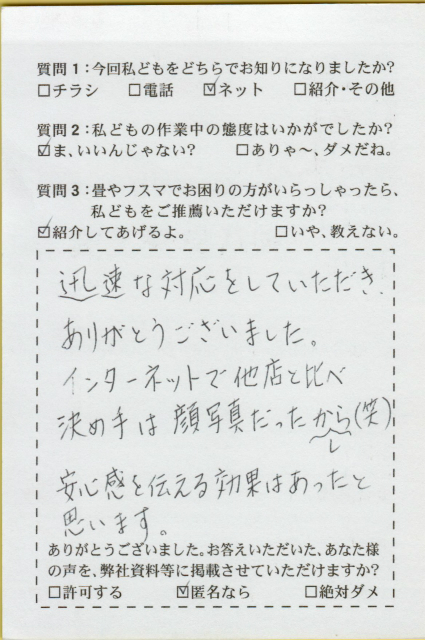 質問1:今回私どもをどちらでお知りになりましたか?
□チラシ □電話 ☑ネット □紹介・その他
質問2:私どもの作業中の態度はいかがでしたか?
☑ま、いいんじゃない? □ありゃ〜、ダメだね。
質問3:畳やフスマでお困りの方がいらっしゃったら、
私どもをご推薦いただけますか?
☑紹介してあげるよ。 □いや、教えない。
迅速な対応をしていただき、
ありがとうございました。
インターネットで他店と比べ
決め手は顔写真だったから(笑)
し
安心感を伝える効果はあったと
思います。
ありがとうございました。お答えいただいた、あなた様
の声を、弊社資料等に掲載させていただけますか?
□許可する ☑匿名なら □絶対ダメ